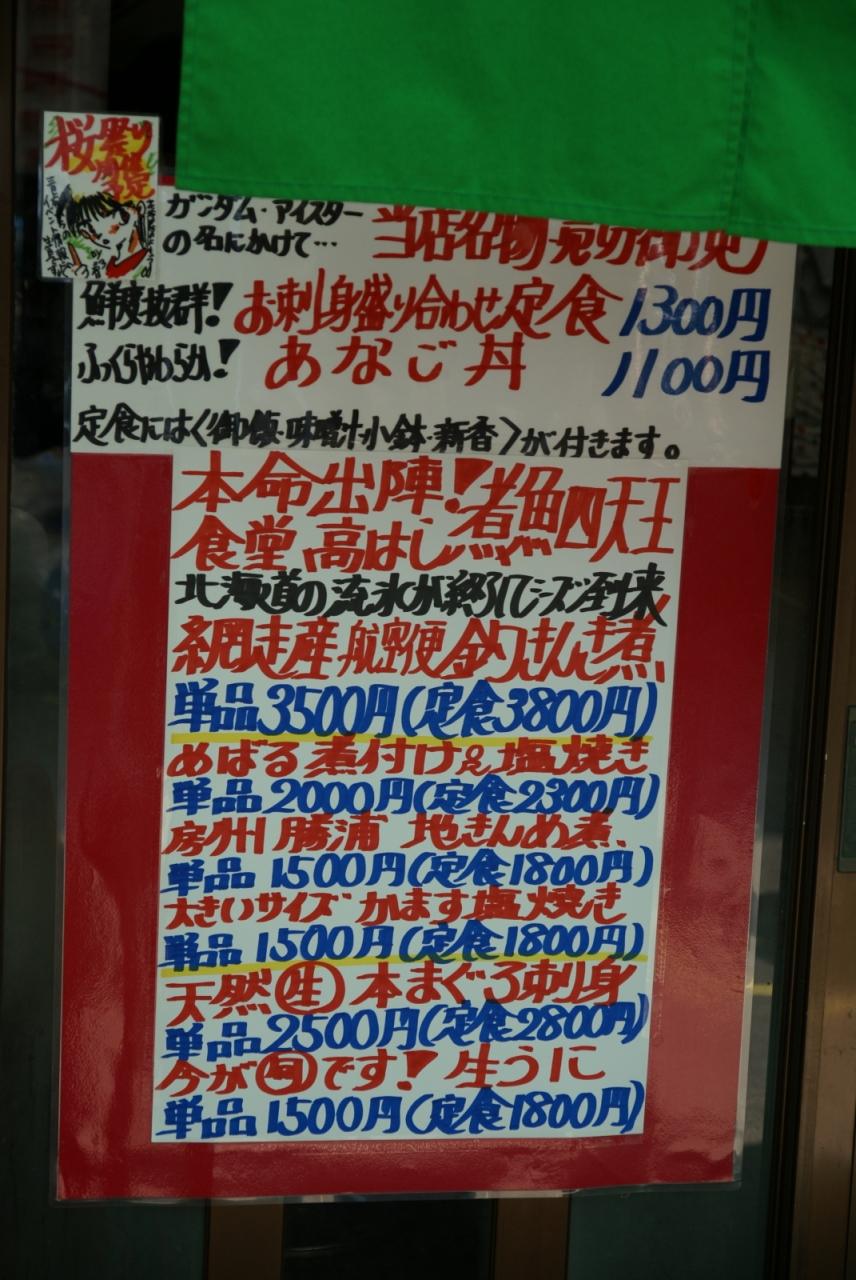 桜祭り
開催
ガンダム・アイスター
の名にかけて…
当店名物
鮮度抜群！お刺身盛り合わせ定食 1300円
ふっくらやわらか！ あなご丼 1100円
定食には〈御飯・味噌汁・小鉢・新香〉が付きます。
本命出陣！煮魚四天王
食堂 高はし
北海道の流氷が終りて到来
網走産 航空便 釣きんき煮
単品3500円(定食3800円)
めばる煮付け&塩焼き
単品2000円(定食2300円)
房州 勝浦 地きんめ煮
単品1500円(定食1800円)
大きいサイズ かます塩焼き
単品1500円(定食1800円)
天然生本まぐろ刺身
単品2500円(定食2800円)
今が旬です！ 生うに
単品1500円(定食1800円)